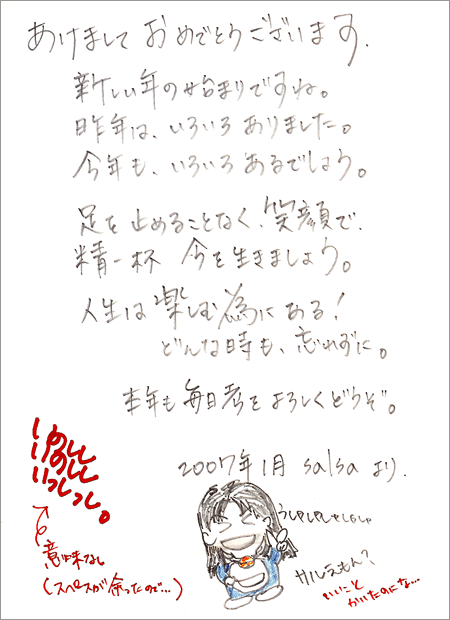 あけまして おめでとうございます.
新しい年の始まりですね。
昨年は、いろいろありました。
今年も、いろいろあるでしょう。
足を止めることなく、笑顔で、
精一杯 今を生きましょう。
人生は楽しむ為にある!
どんな時も、忘れずに。
本年も毎日考をよろしくどうぞ。
2007年1月 salsa より.
いのしし
いのしし
いっしっし。
意味なし
(スペースが余ったので…)
うしゃしゃしゃしゃしゃ
サルえもん?
いいこと
かいたのにな…